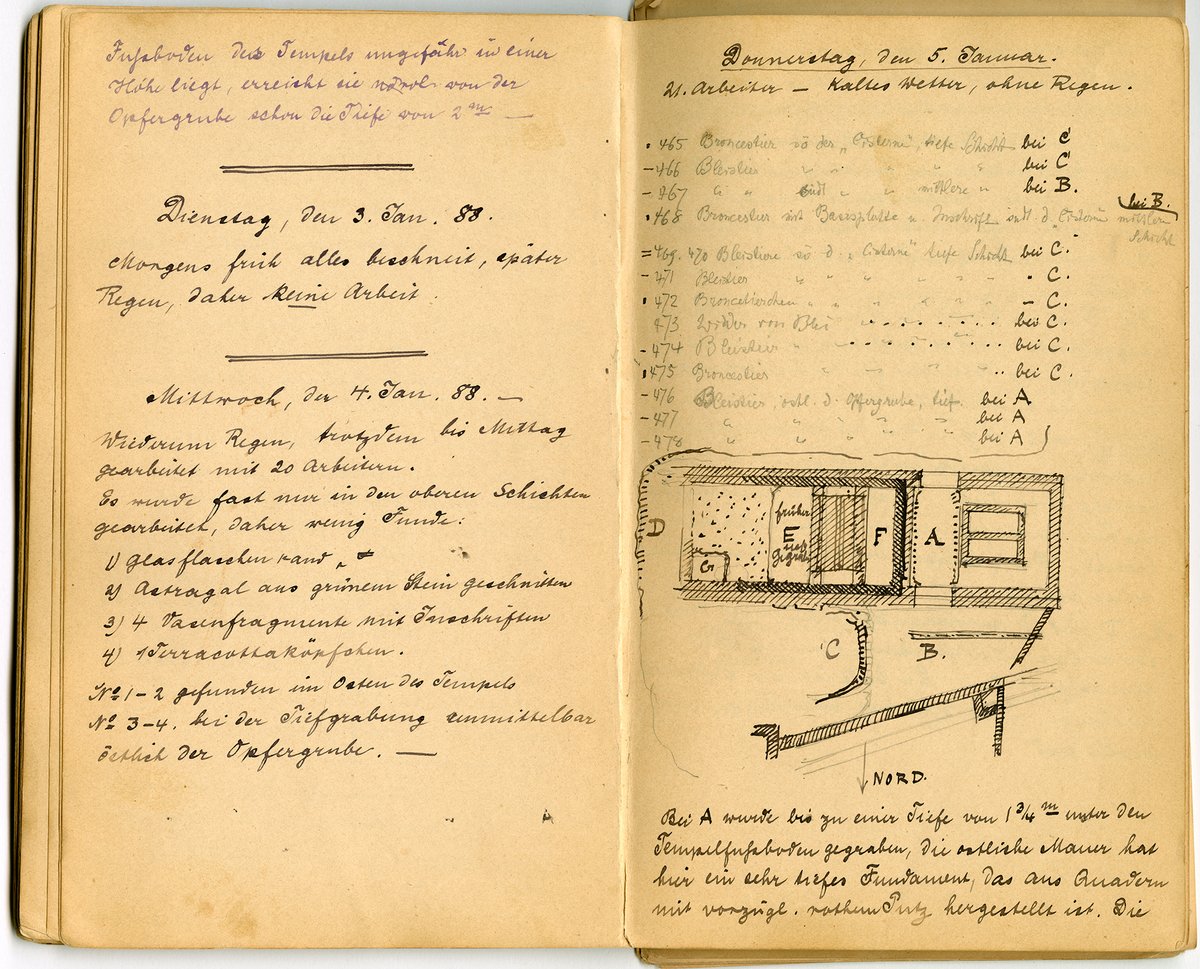 Fussboden des Tempels ungefähr in einer
Höhe liegt, erreicht sie nördl. von der
Opfergrube schon die Tiefe von 2 m —
Dienstag, den 3. Jan. 88.
Morgens früh alles beschneit, später
Regen, daher keine Arbeit.
Mittwoch, der 4. Jan. 88. —
Wiederum Regen, trotzdem bis Mittag
gearbeitet mit 20 Arbeitern.
Es wurde fast nur in den oberen Schichten
gearbeitet, daher wenig Funde:
1) Glasflaschenrand
2) Astragal aus grünem Stein geschnitten
3) 4 Vasenfragmente mit Inschriften
4) 1 Terracottaköpfchen.
No 1-2 gefunden im Osten des Tempels
No 3-4. bei der Tiefgrabung unmittelbar
östlich der Opfergrube. —
Donnerstag, den 5. Januar.
21. Arbeiter — Kaltes Wetter, ohne Regen.
• 465 Broncestier sö der „Cisterne", tiefe Schicht bei C
– 466 Bleistier " " " " " bei C
– 467 " " südl " " mittlere " bei B.
• 468 Broncestier mit Basisplatte u. Inschrift südl. d. „Cisterne" mittlere Schicht bei B.
= 469. 470 Bleistiere sö d. „Cisterne" tiefe Schicht bei C.
– 471 Bleistier " " " " " " C.
• 472 Broncetierchen " " " " " – C.
473 Widder von Blei " bei C.
– 474 Bleistier " bei C.
• 475 Broncestier " " bei C.
– 476 Bleistier, östl. d. Opfergrube, tief. bei A
– 477 " " " " " bei A
– 478 " " " " " bei A
D
G
früher
E
gegraben
F
A
C
B.
NORD.
Bei A wurde bis zu einer Tiefe von 1 3/4 m unter den
Tempelfussboden gegraben, die östliche Mauer hat
hier ein sehr tiefes Fundament, das aus Quadern
mit vorzügl. rothem Putz hergestellt ist. Die